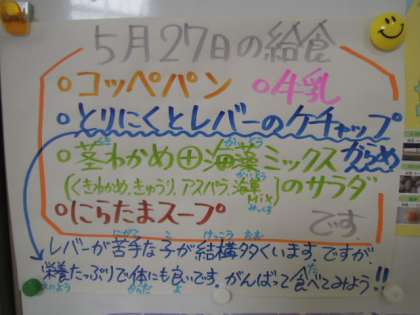 5月27日の給食
○コッペパン ○牛乳
○とりにくとレバーのケチャップ
からめ
○茎わかめ⊕海藻ミックス
(くきわかめ、きゅうり、アスパラ、海草Mix)のサラダ
○にらたまスープ です。
レバーが苦手な子が結構多くいます。ですが、
栄養たっぷりで体にも良いです。がんばって食べてみよう!!